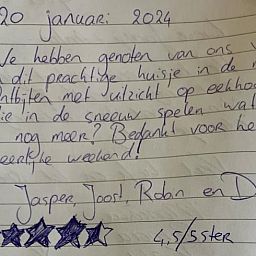 20 januari 2024
We hebben genoten van ons
dit prachtige huisje in de
Ontbijten met uitzicht op
die in de sneeuw spelen wat
nog meer? Bedankt voor
weekend!
Jasper, Joost, Robin en D
4,5/5 ster